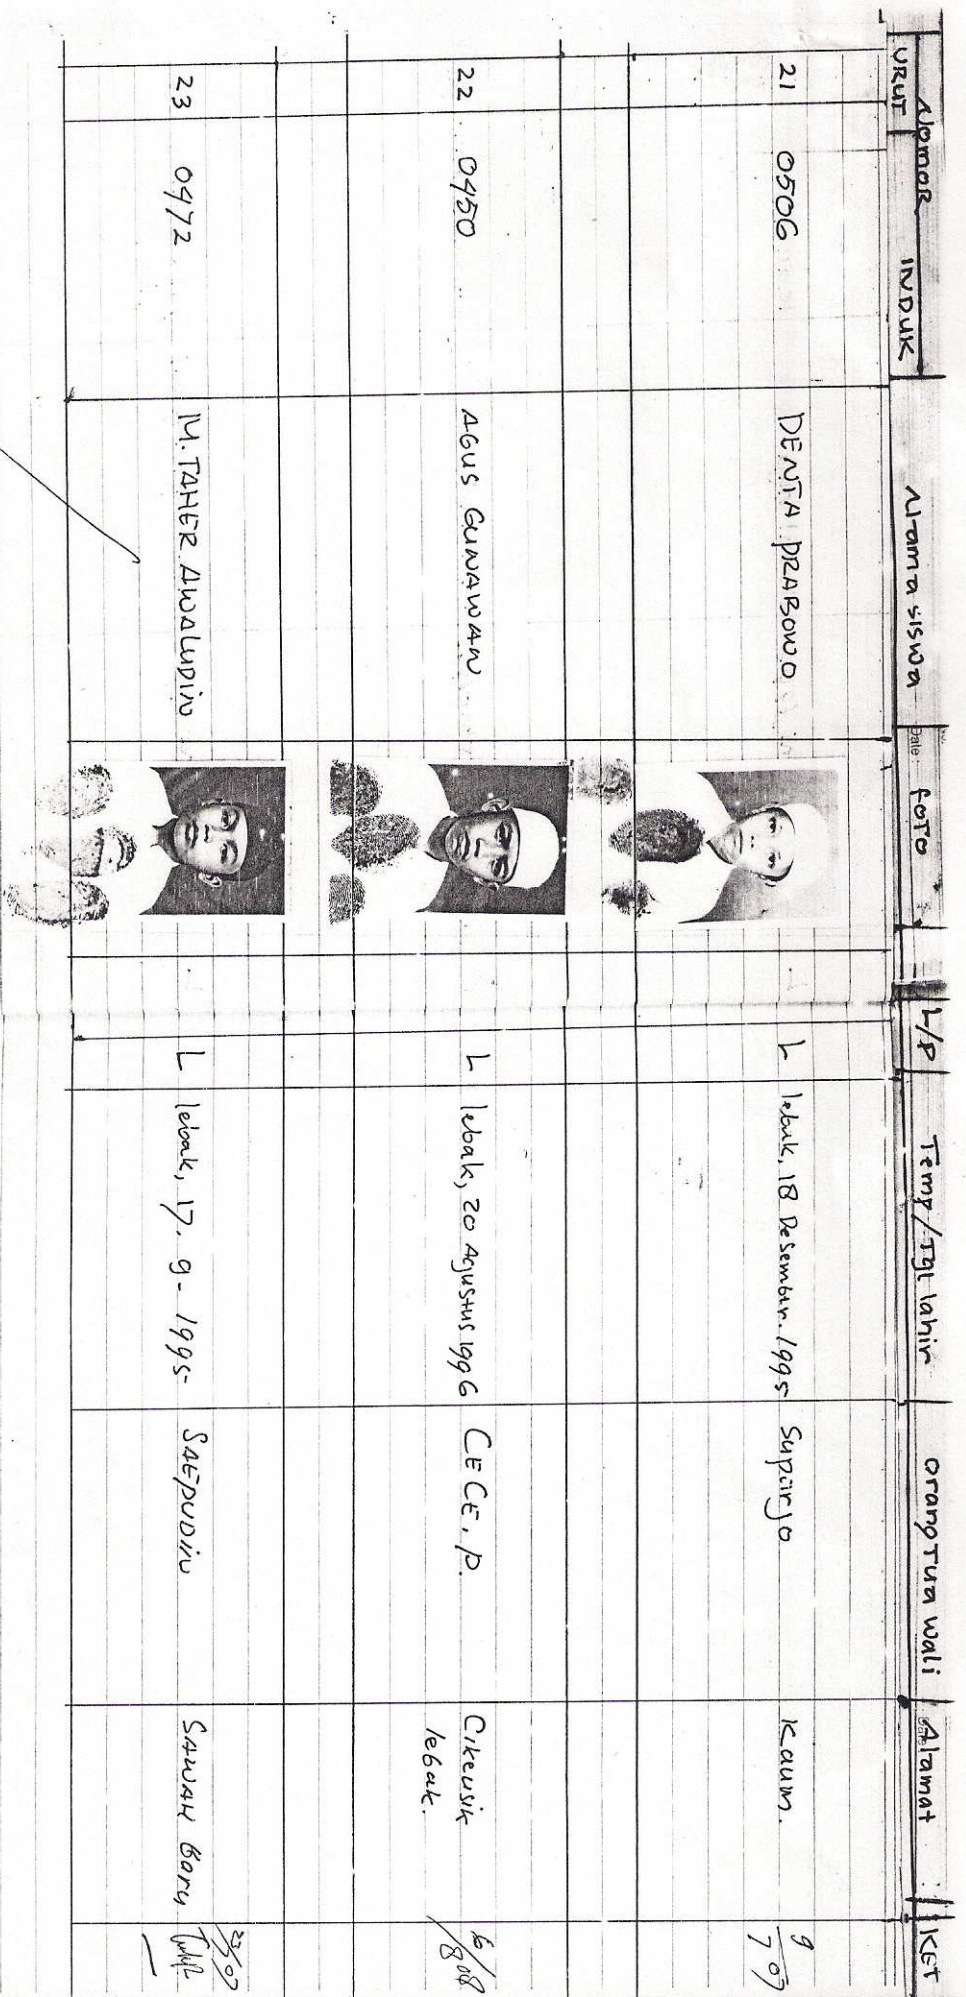 Nomor
URUT INDUK
Nama siswa
Date
foto
L/P
Temp/Tgl lahir
Orang Tua wali
Alamat
KET
21 0506 DENTA PRABOWO L lebak, 18 Desember. 1995 Kaum. 9/7 07
22 0450 AGUS GUNAWAN L lebak, 20 Agustus 1996 CECE. P. Cikeusik
lebak.
23 0472 M. TAHER AWALUDIN L lebak, 17. 9 - 1995 SAEPUDIN SAWAH Baru